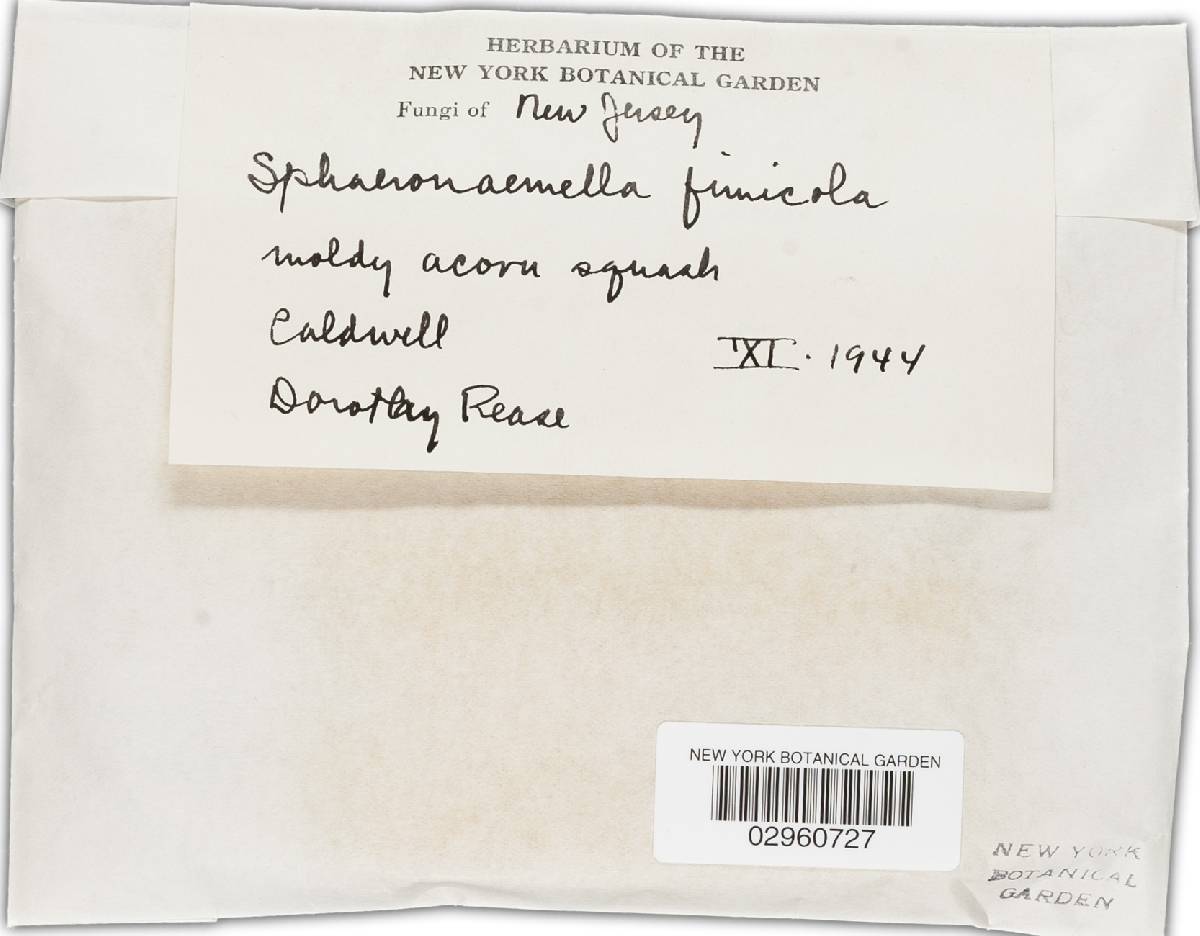 HERBARIUM OF THE
NEW YORK BOTANICAL GARDEN
Fungi of New Jersey
Sphaeronaemella fimicola
moldy acorn squash
Caldwell
XI. 1944
Dorothy Rease
NEW YORK BOTANICAL GARDEN
02960727
NEW YORK
BOTANICAL
GARDEN